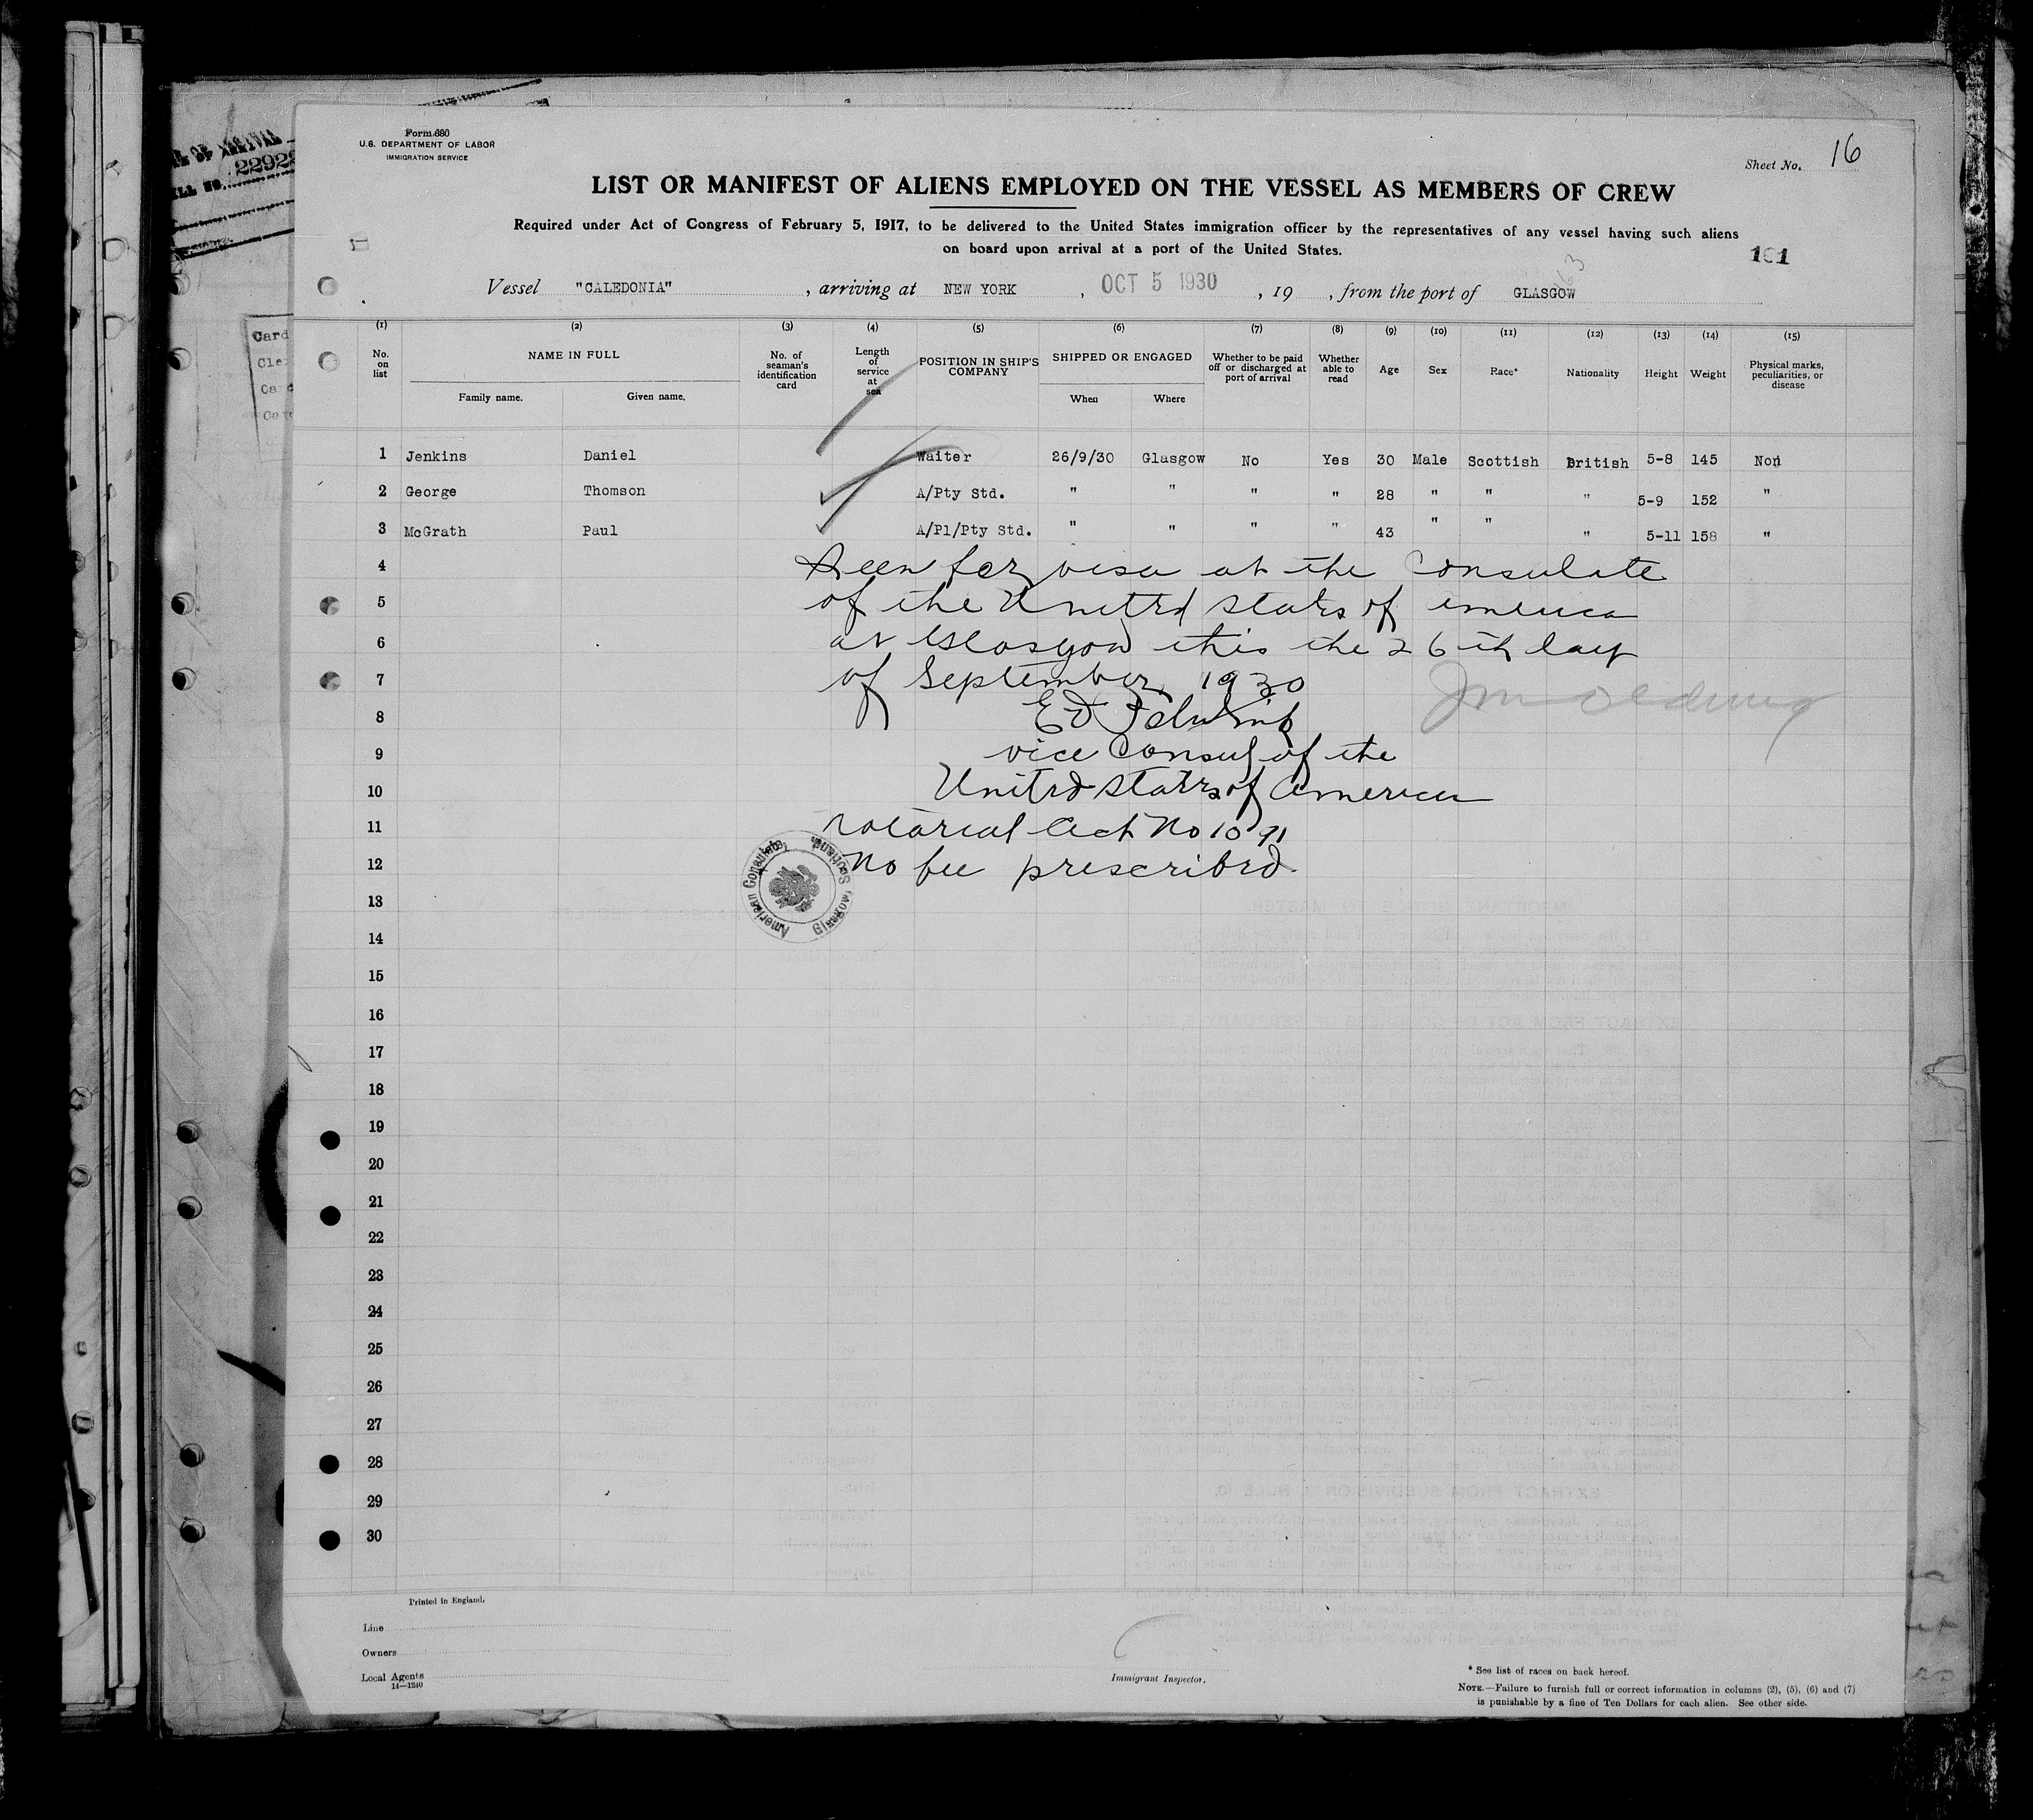 Form 680
U.S. DEPARTMENT OF LABOR
IMMIGRATION SERVICE
Sheet No. 16
22922
LIST OR MANIFEST OF ALIENS EMPLOYED ON THE VESSEL AS MEMBERS OF CREW
Required under Act of Congress of February 5, 1917, to be delivered to the United States immigration officer by the representatives of any vessel having such aliens
on board upon arrival at a port of the United States.
101
Vessel "CALEDONIA" , arriving at NEW YORK , OCT 5 1930 , 19 , from the port of GLASGOW
(1) (2) (3) (4) (5) (6) (7) (8) (9) (10) (11) (12) (13) (14) (15)
No. on list NAME IN FULL Family name. Given name. No. of seaman's identification card Length of service at sea POSITION IN SHIP'S COMPANY SHIPPED OR ENGAGED When Where Whether to be paid off or discharged at port of arrival Whether able to read Age Sex Race* Nationality Height Weight Physical marks, peculiarities, or disease
1 Jenkins Daniel Waiter 26/9/30 Glasgow No Yes 30 Male Scottish British 5-8 145 Non
2 George Thomson A/Pty Std. " " " " 28 " " " 5-9 152 "
3 McGrath Paul A/Pl/Pty Std. " " " " 43 " " " 5-11 158 "
4 Seen for visa at the Consulate
5 of the United States of America
6 at Glasgow this the 26th day
7 of September 1930
8
9 vice Consul of the
10 United States of America
11 notarial Act No 1091
12 No fee prescribed
American Consulate, Glasgow, Scotland.
13
14
15
16
17
18
19
20
21
22
23
24
25
26
27
28
29
30
Printed in England.
Line
Owners
Local Agents
14—1240
Immigrant Inspector.
* See list of races on back hereof.
NOTE.—Failure to furnish full or correct information in columns (2), (5), (6) and (7)
is punishable by a fine of Ten Dollars for each alien. See other side.